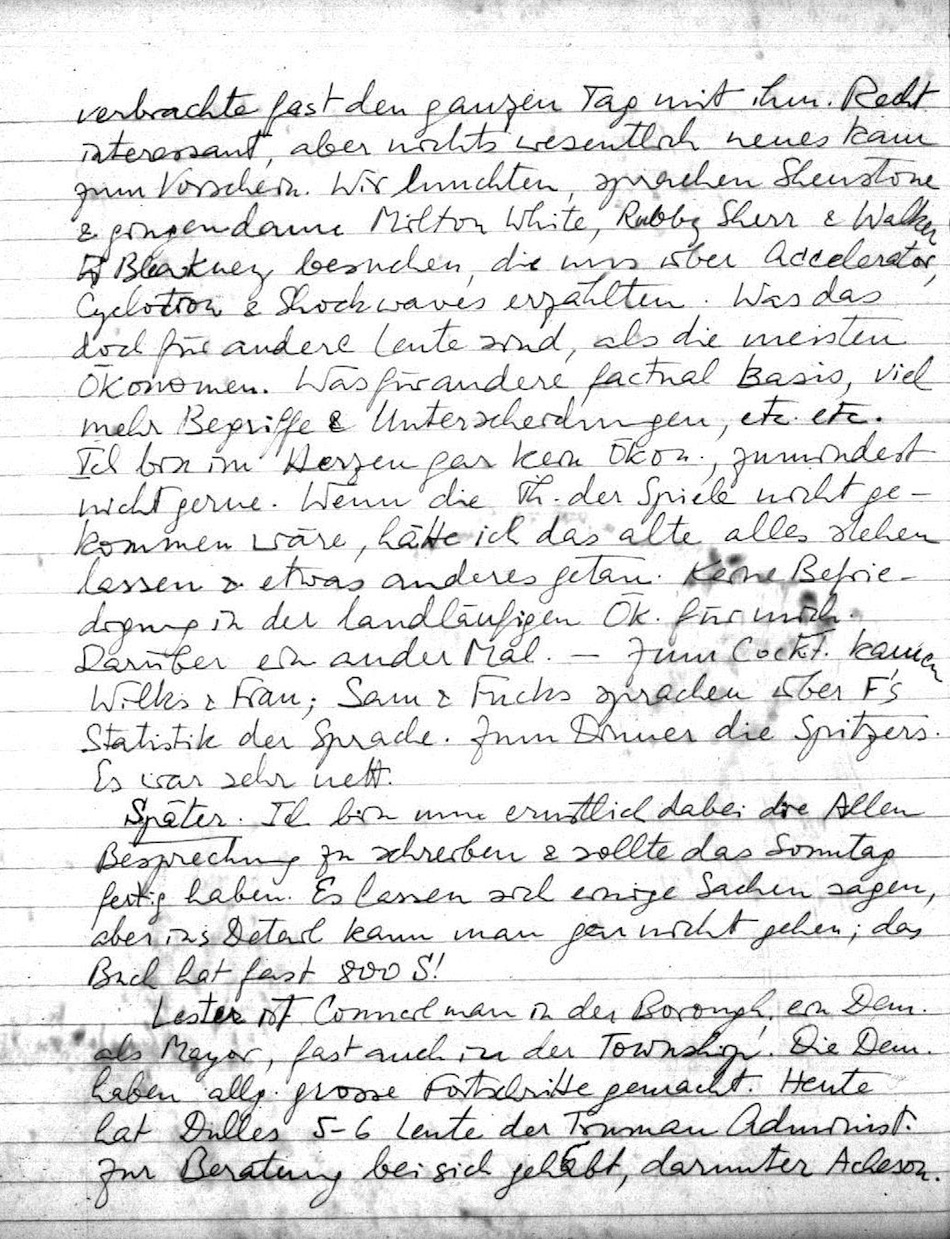 verbrachte fast den ganzen Tag mit ihm. Recht
interessant, aber nichts wesentlich neues kam
zum Vorschein. Wir lunchten, sprachen Shenstone
& gingen dann Milton White, Rubby Sherr & Walker
Bleakney besuchen, die uns über Accelerator,
Cyclotron & Shockwaves erzählten. Was das
doch für andere Leute sind, als die meisten
Ökonomen. Was für andere factual Basis, viel
mehr Begriffe & Unterscheidungen, etc. etc.
Ich bin im Herzen gar kein Ökon., zumindest
nicht gerne. Wenn die Th. der Spiele nicht ge-
kommen wäre, hätte ich das alte alles stehen
lassen & etwas anderes getan. Keine Befrie-
digung in der landläufigen Ök. für mich.
Darüber ein ander Mal. — Zum Cockt. kamen
Wilks & Frau; Sam & Fucks sprachen über F's
Statistik der Sprache. Zum Dinner die Spitzers.
Es war sehr nett.
Später. Ich bin nun ernstlich dabei die Allen
Besprechung zu schreiben & sollte das Sonntag
fertig haben. Es lassen sich einige Sachen sagen,
aber ins Detail kann man gar nicht gehen; das
Buch hat fast 800 S!
Lester ist Councilman in der Borough, ein Dem.
als Mayor, fast auch in der Township. Die Dem.
haben allg. grosse Fortschritte gemacht. Heute
hat Dulles 5-6 Leute der Truman Administ.
zur Beratung bei sich gehabt, darunter Acheson.